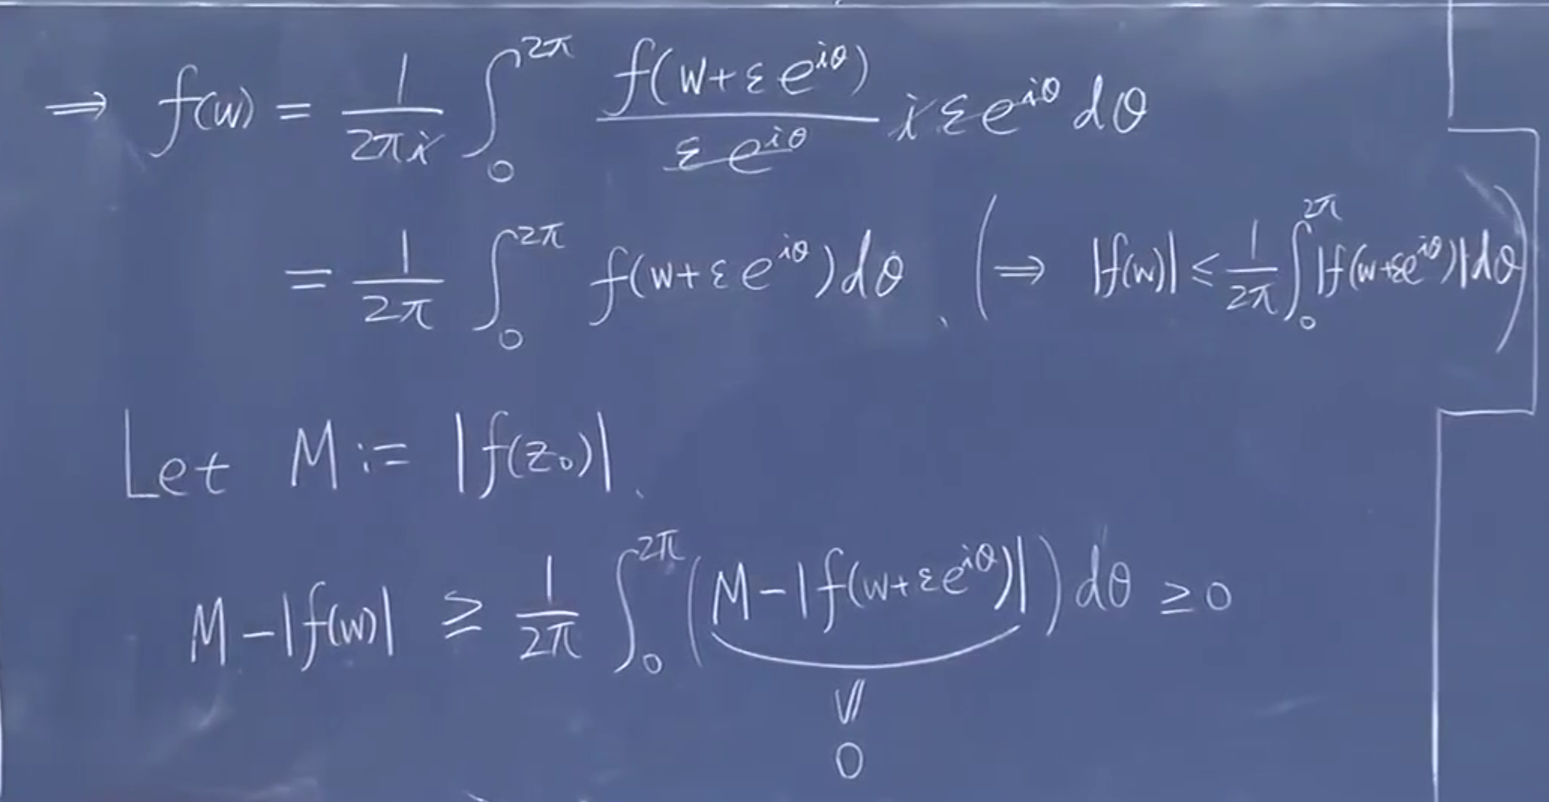 ⇒ f(w) = \frac{1}{2πi} ∫_0^{2π} \frac{f(w+εe^{iθ})}{εe^{iθ}} iεe^{iθ} dθ
= \frac{1}{2π} ∫_0^{2π} f(w+εe^{iθ})dθ. (⇒ |f(w)| ≤ \frac{1}{2π} ∫_0^{2π} |f(w+εe^{iθ})|dθ)
Let M := |f(z_0)|.
M-|f(w)| ≥ \frac{1}{2π} ∫_0^{2π} (M-|f(w+εe^{iθ})|) dθ ≥ 0
∨∥
0